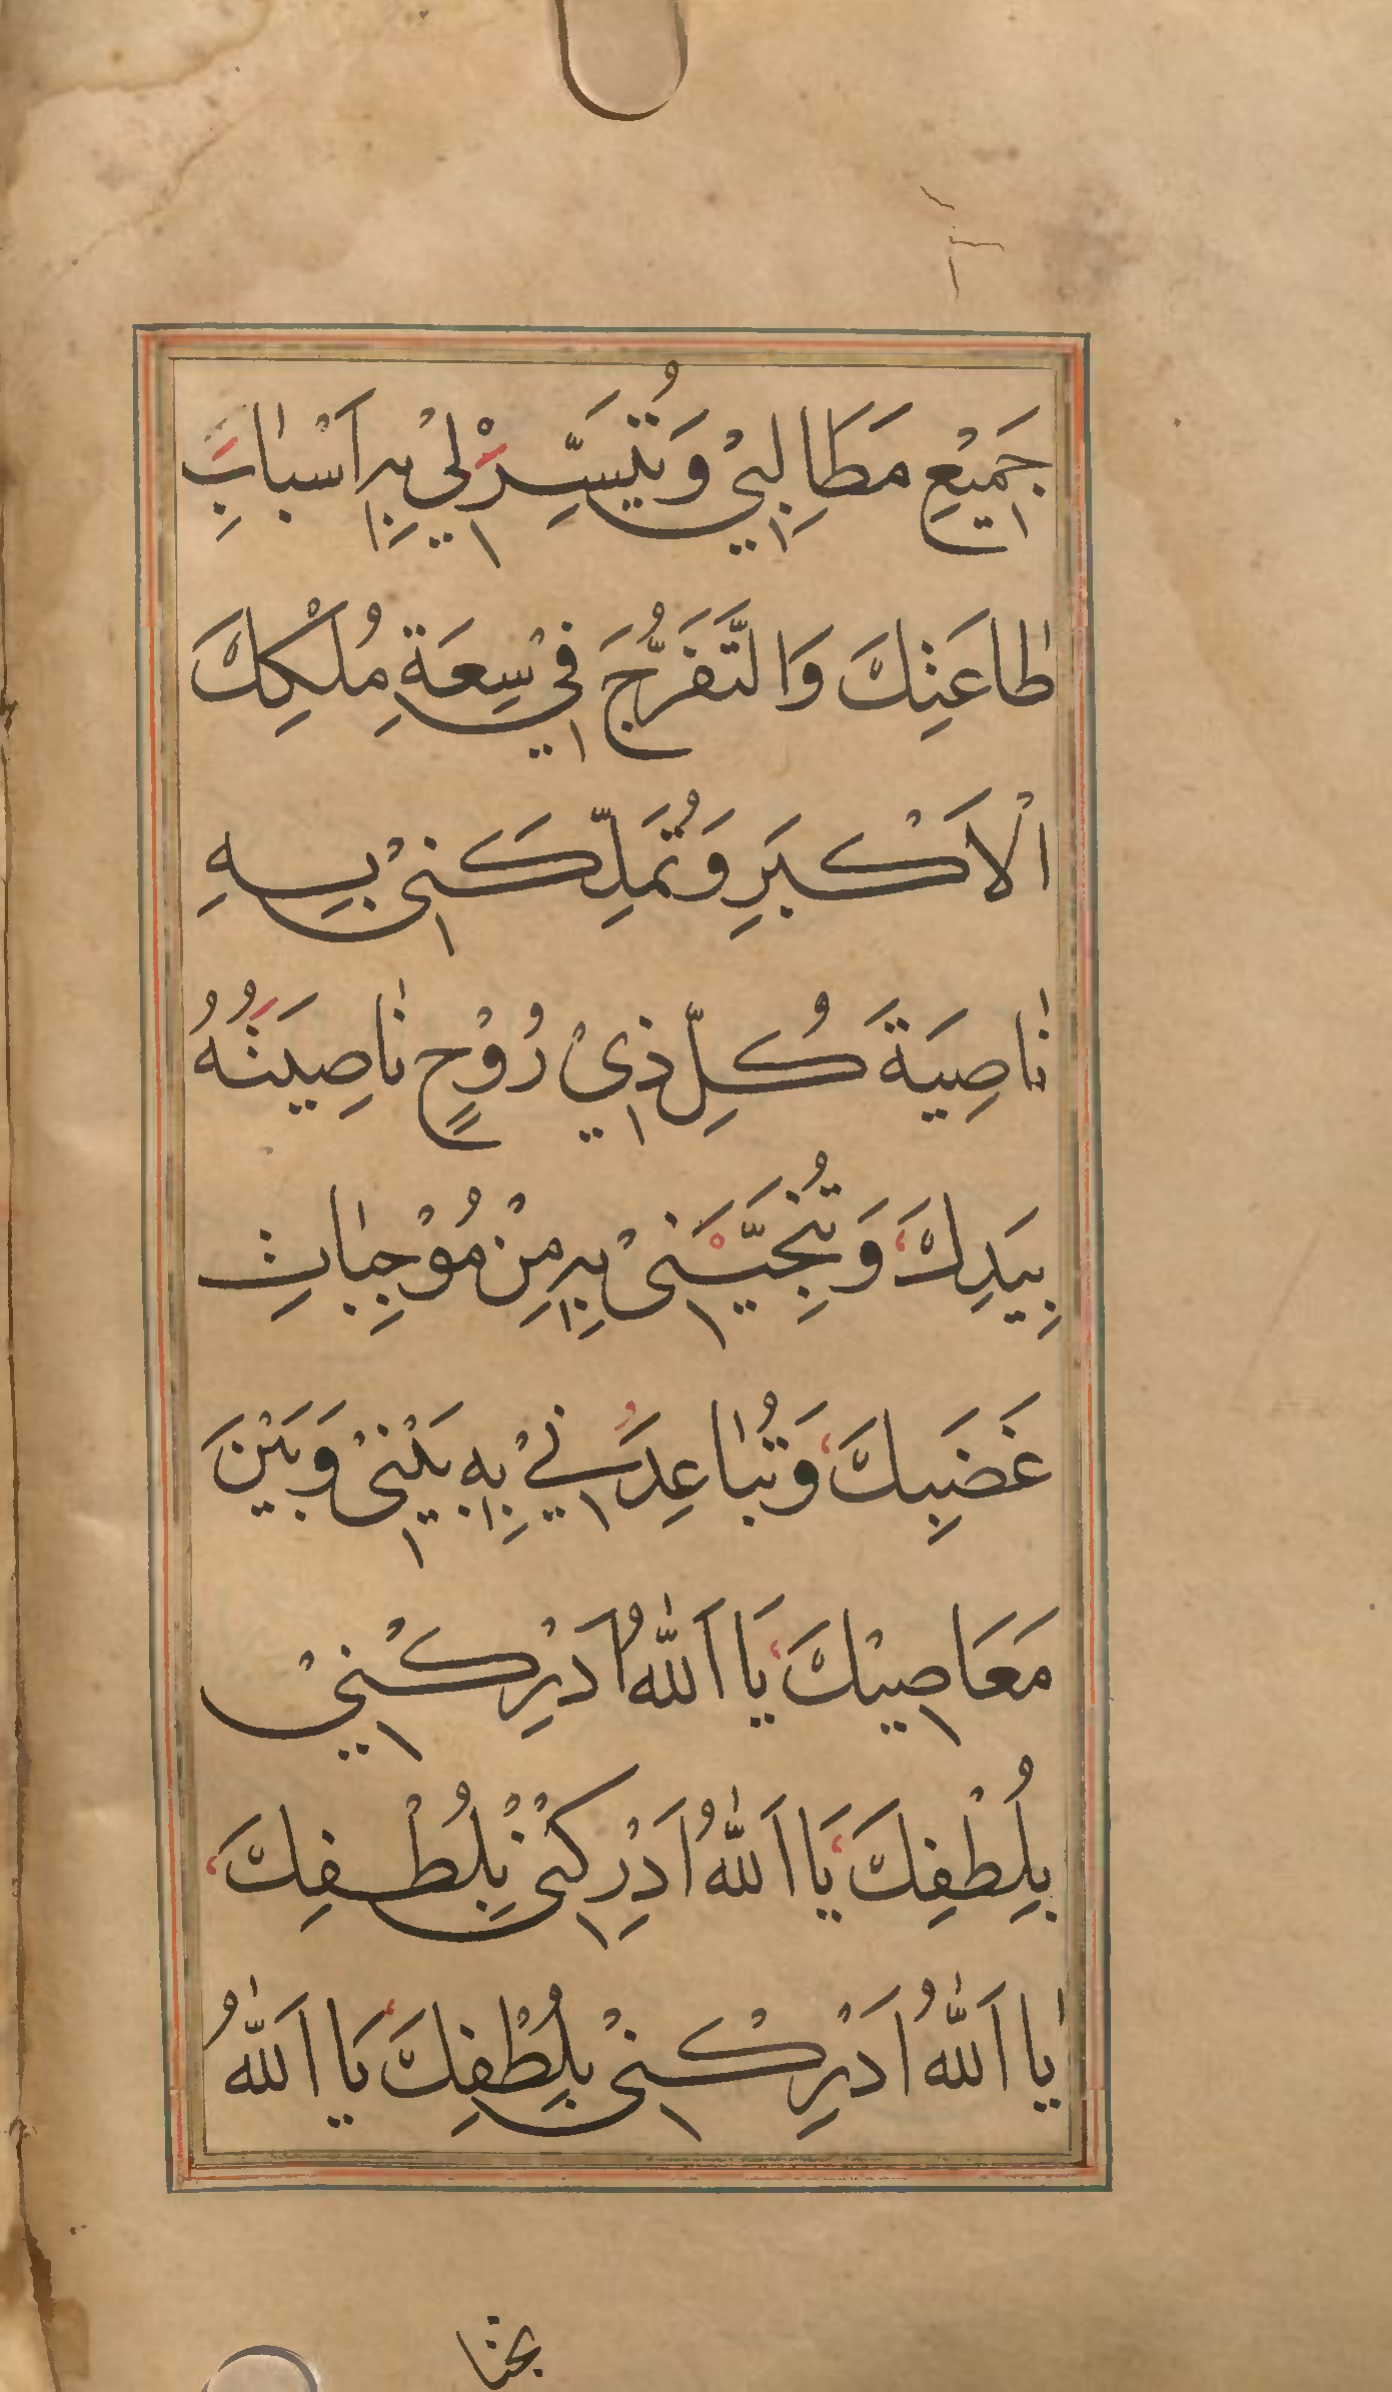 جَمِيْعِ مَطَالِبِيْ وَتُيَسِّرَْ لِيْ بِهِ اَسْبٰابَِ
طٰاعَتِكَ وَالتَّفَرُّجَ فِيْ سِعَةِ مُلْكِكَ
الْاَكْبَرِ وَتُمَلِّكَنِيْ بِهِ
نٰاصِيَةَ كُلِّ ذِيْ رُوْحٍ نٰاصِيَتُهُ
بِيَدِكَ وَتُنَجِّيَنِيْ بِهِ مِنْ مُوْجِبٰاتِ
غَضَبِكَ وَتُبٰاعِدَُنِيْ بِهِ بَيْنِيْ وَبَيْنَ
مَعَاصِيْكَ يَا اَللّٰهُ اَدْرِكْنِيْ
بِلُطْفِكَ يَا اَللّٰهُ اَدْرِكْنِيْ بِلُطْفِكَ
يٰا اَللّٰهُ اَدْرِكْنِيْ بِلُطْفِكَ يَا اَللّٰهُ